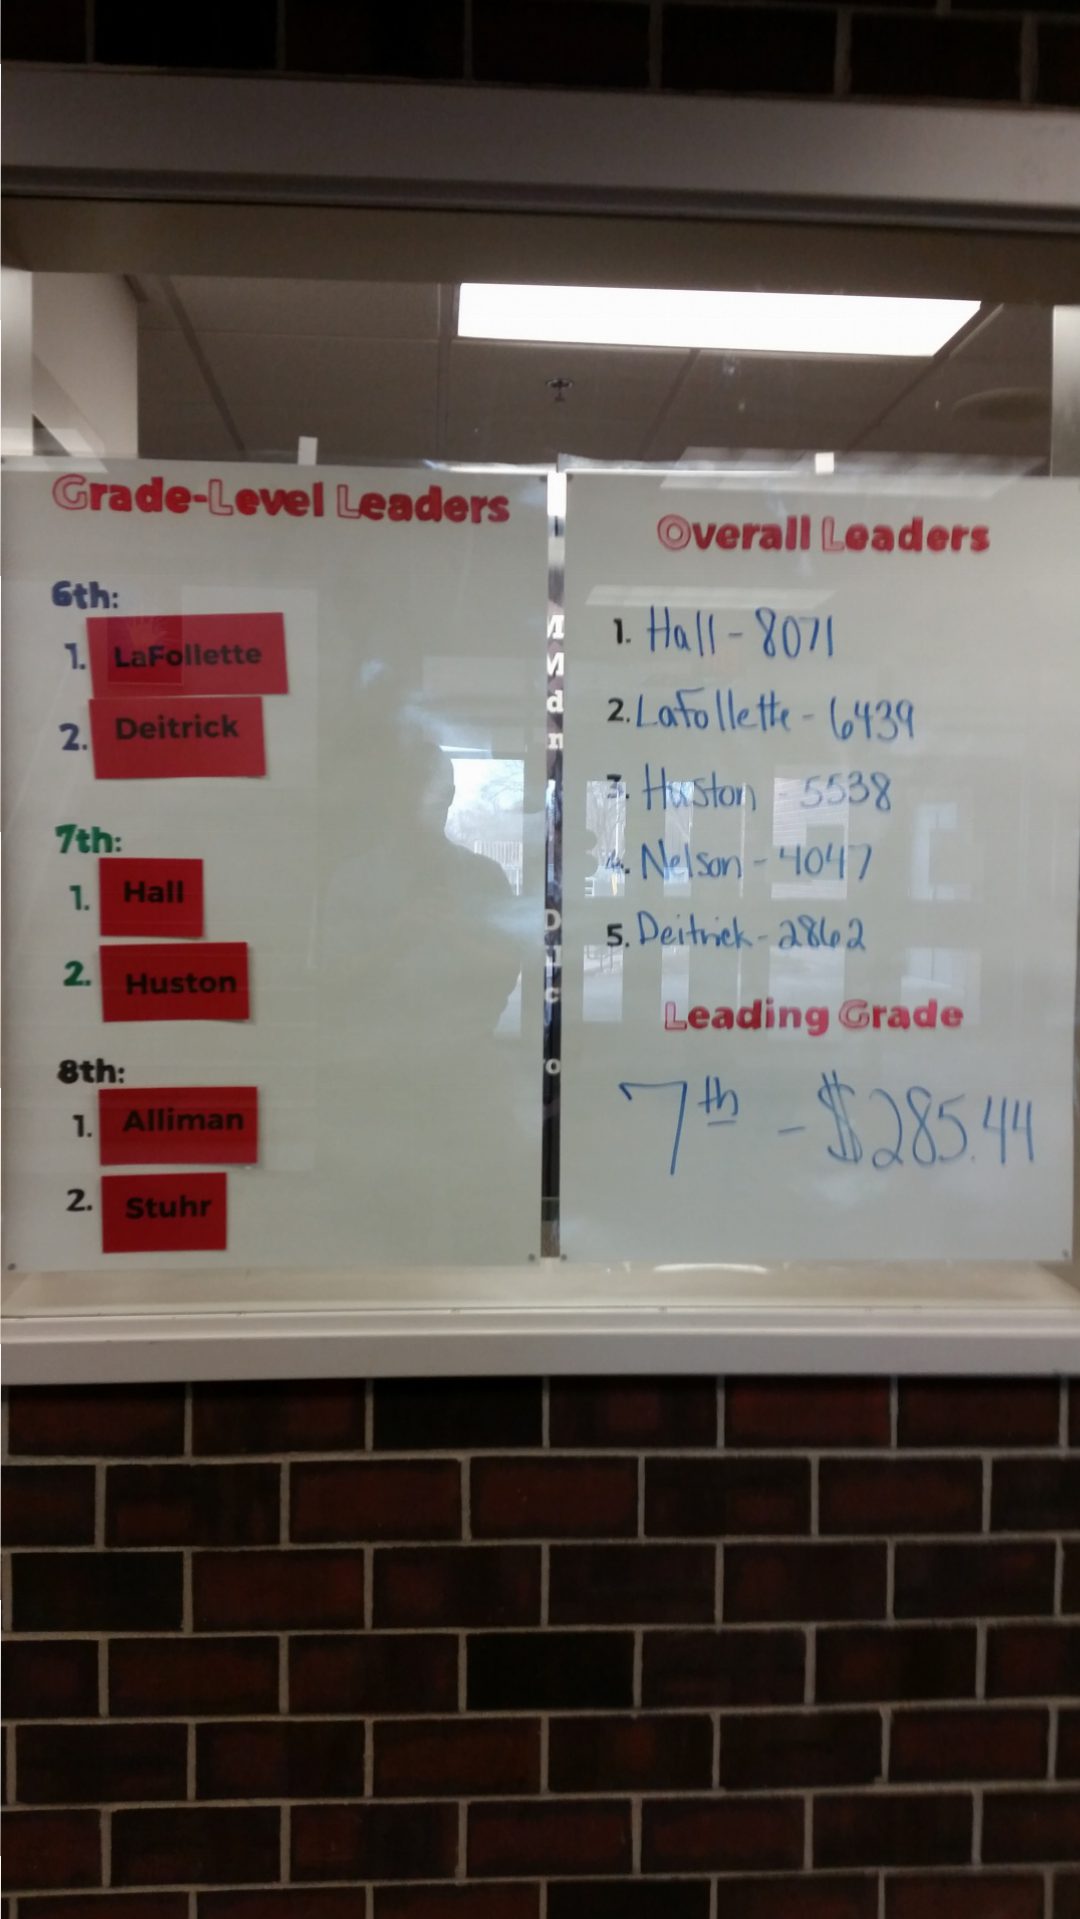 Grade-Level Leaders
6th:
1. LaFollette
2. Deitrick
7th:
1. Hall
2. Huston
8th:
1. Alliman
2. Stuhr
Overall Leaders
1. Hall - 8071
2. Lafollette - 6439
3. Huston - 5538
4. Nelson - 4047
5. Deitrick - 2862
Leading Grade
7th - $285.44